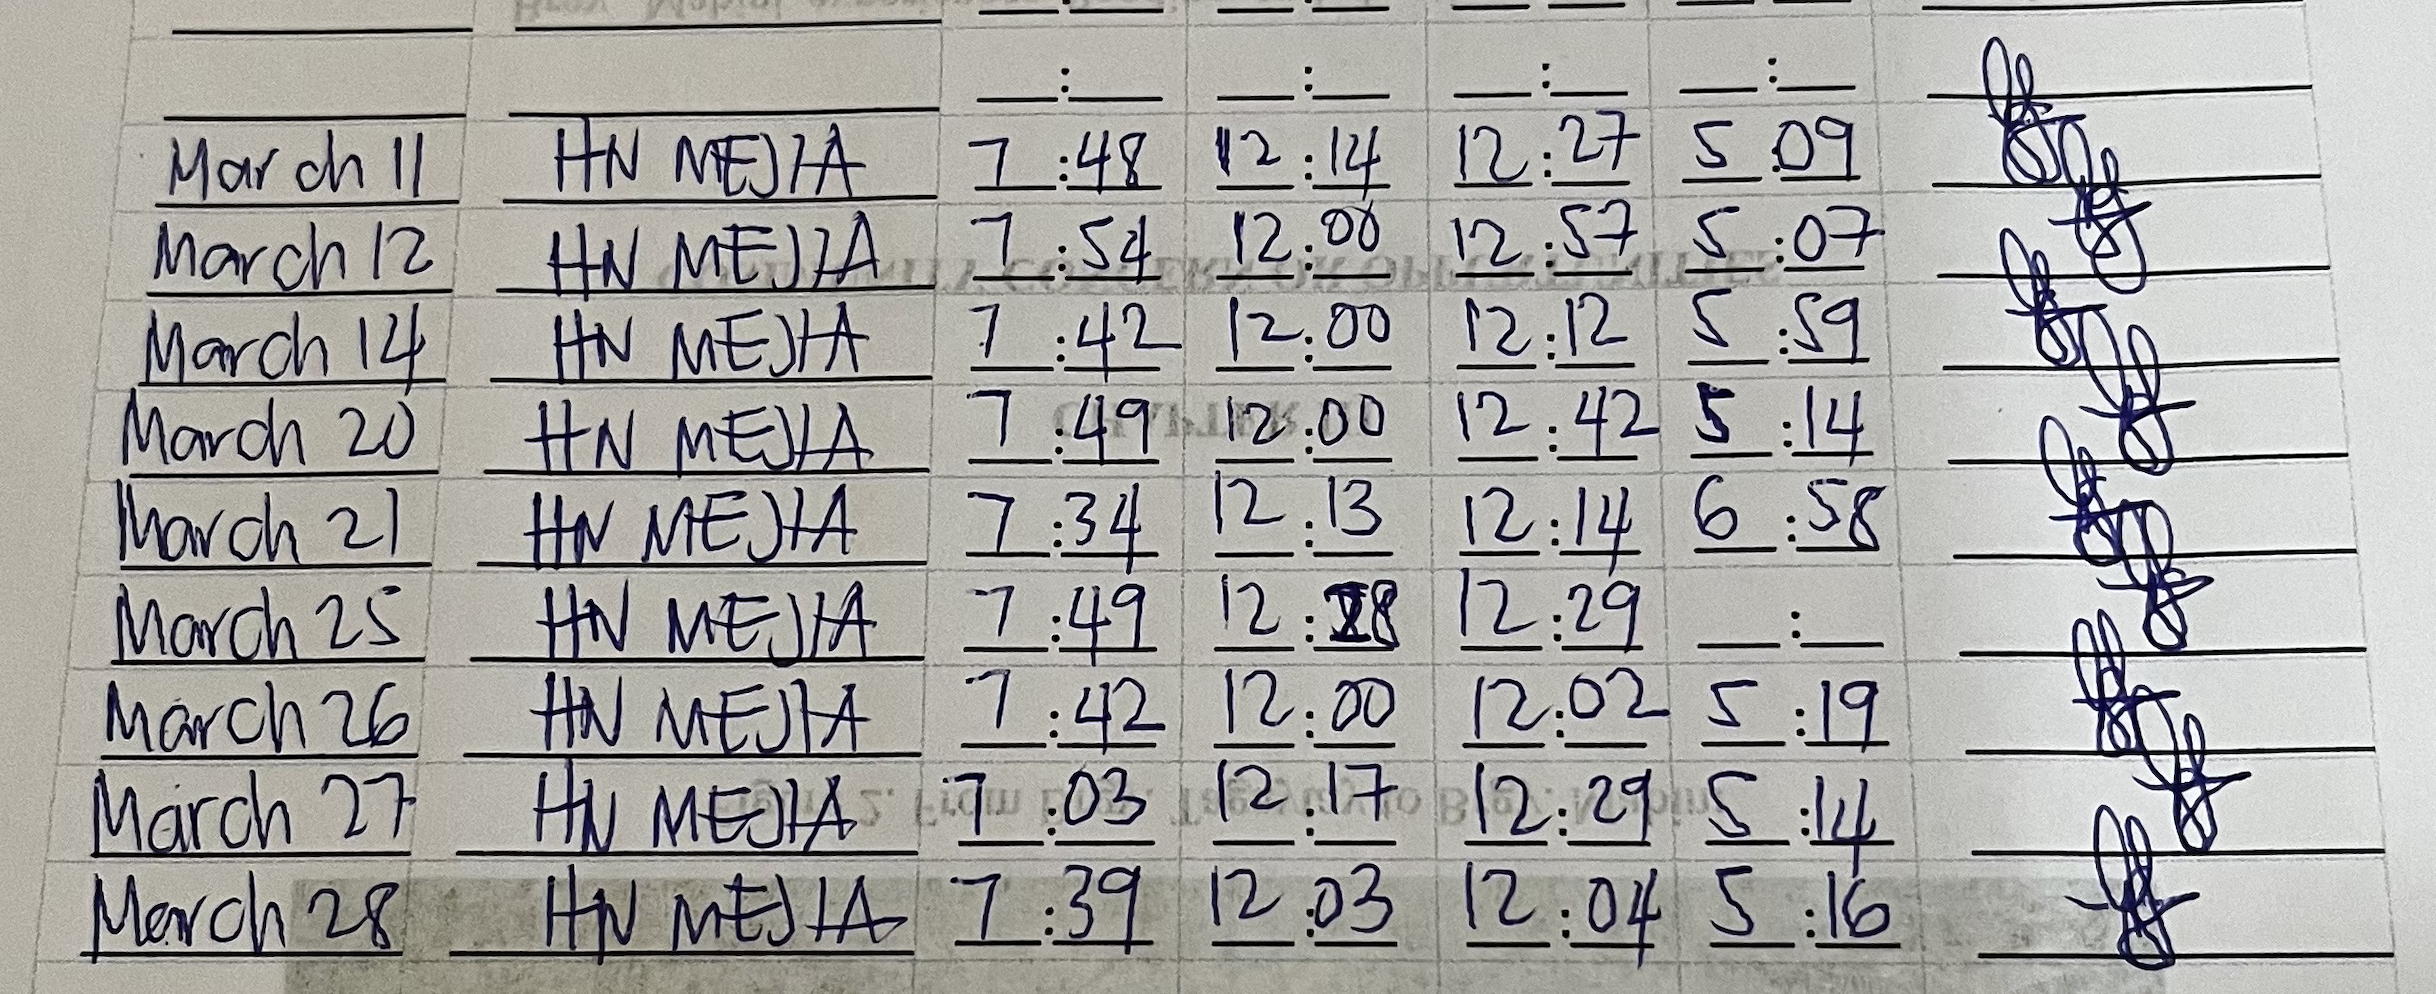 __:__ __:__ __:__ __:__
March 11 HN MEJIA 7:48 12:14 12:27 5:09
March 12 HN MEJIA 7:54 12:00 12:57 5:07
March 14 HN MEJIA 7:42 12:00 12:12 5:59
March 20 HN MEJIA 7:49 12:00 12:42 5:14
March 21 HN MEJIA 7:34 12:13 12:14 6:58
March 25 HN MEJIA 7:49 12:28 12:29 __:__
March 26 HN MEJIA 7:42 12:00 12:02 5:19
March 27 HN MEJIA 7:03 12:17 12:29 5:14
March 28 HN MEJIA 7:39 12:03 12:04 5:16